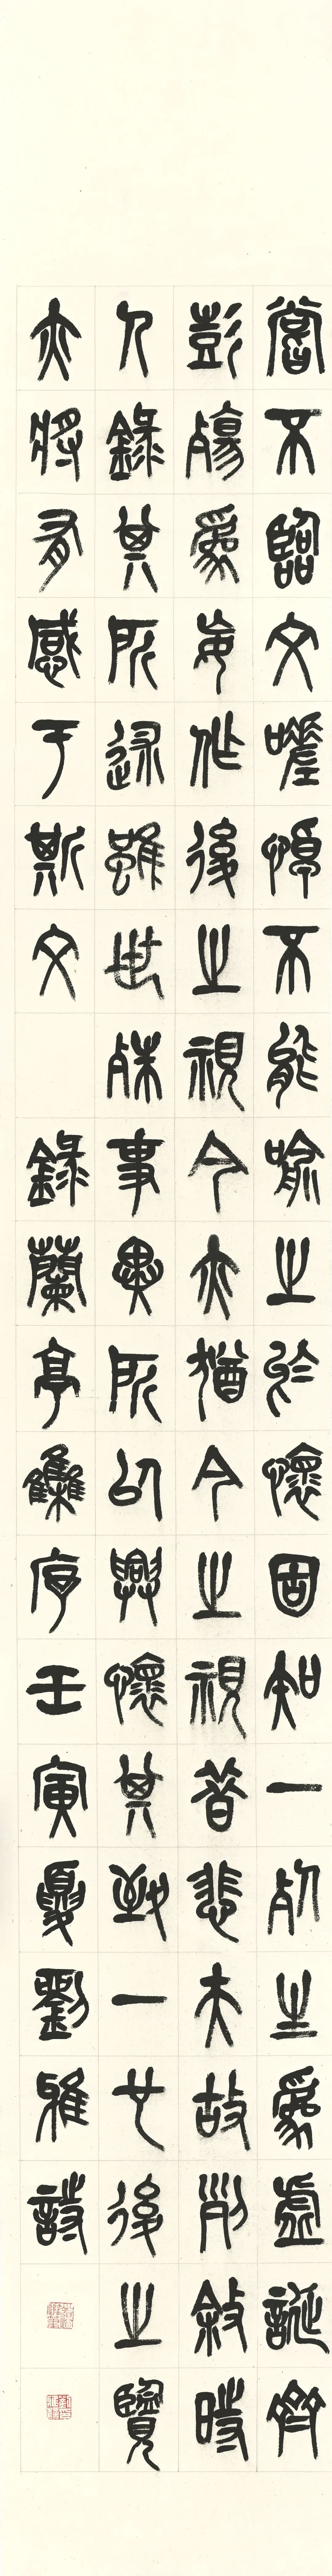 嘗不臨文嗟悼不能喻之於懷固知一死生爲虛誕齊
彭殤爲妄作後之視今亦猶今之視昔悲夫故列敘時
人錄其所述雖世殊事異所以興懷其致一也後之覽
亦將有感于斯文 錄蘭亭集序壬寅夏劉雅詩